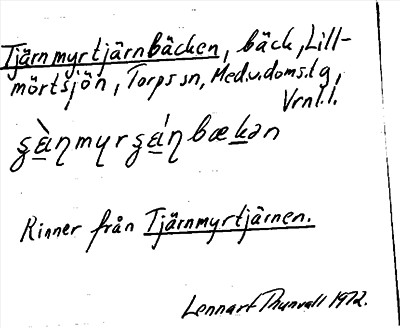 Tjärnmyrtjärnbäcken, bäck, Lill-
mörtsjön, Torps sn, Med.v.doms.lg,
Vrnl.l.
Rinner från Tjärnmyrtjärnen.
Lennart Thunvall 1972.